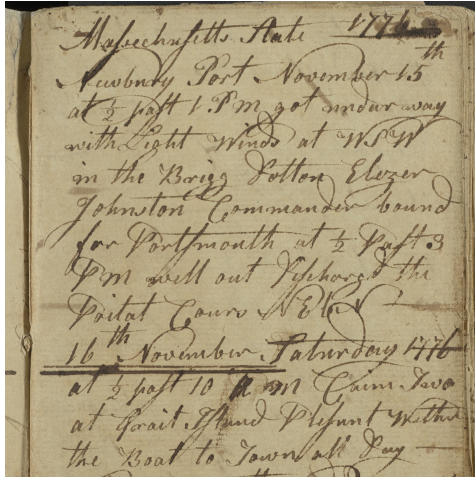 Massechusetts State 1776
Newbury Port November 15th
at ½ past 1 PM got under way
with Light Winds at WSW
in the Brigg Dolton Elezer
Johnston Commander bound
for Portsmouth at ½ Past 3
PM well out Discharged the
Poilat Cours NEbN
16th November Saturday 1776
at ½ past 10 A M Caim Two
at Grait Island Plesunt Wether
the Boat to Town all Day